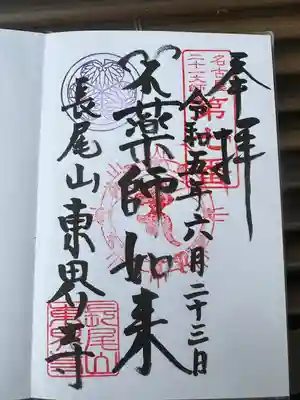 奉拝
名古屋
二十一大師
令和五年六月二十三日
薬師如来
長尾山 東界寺
長尾山
東界寺